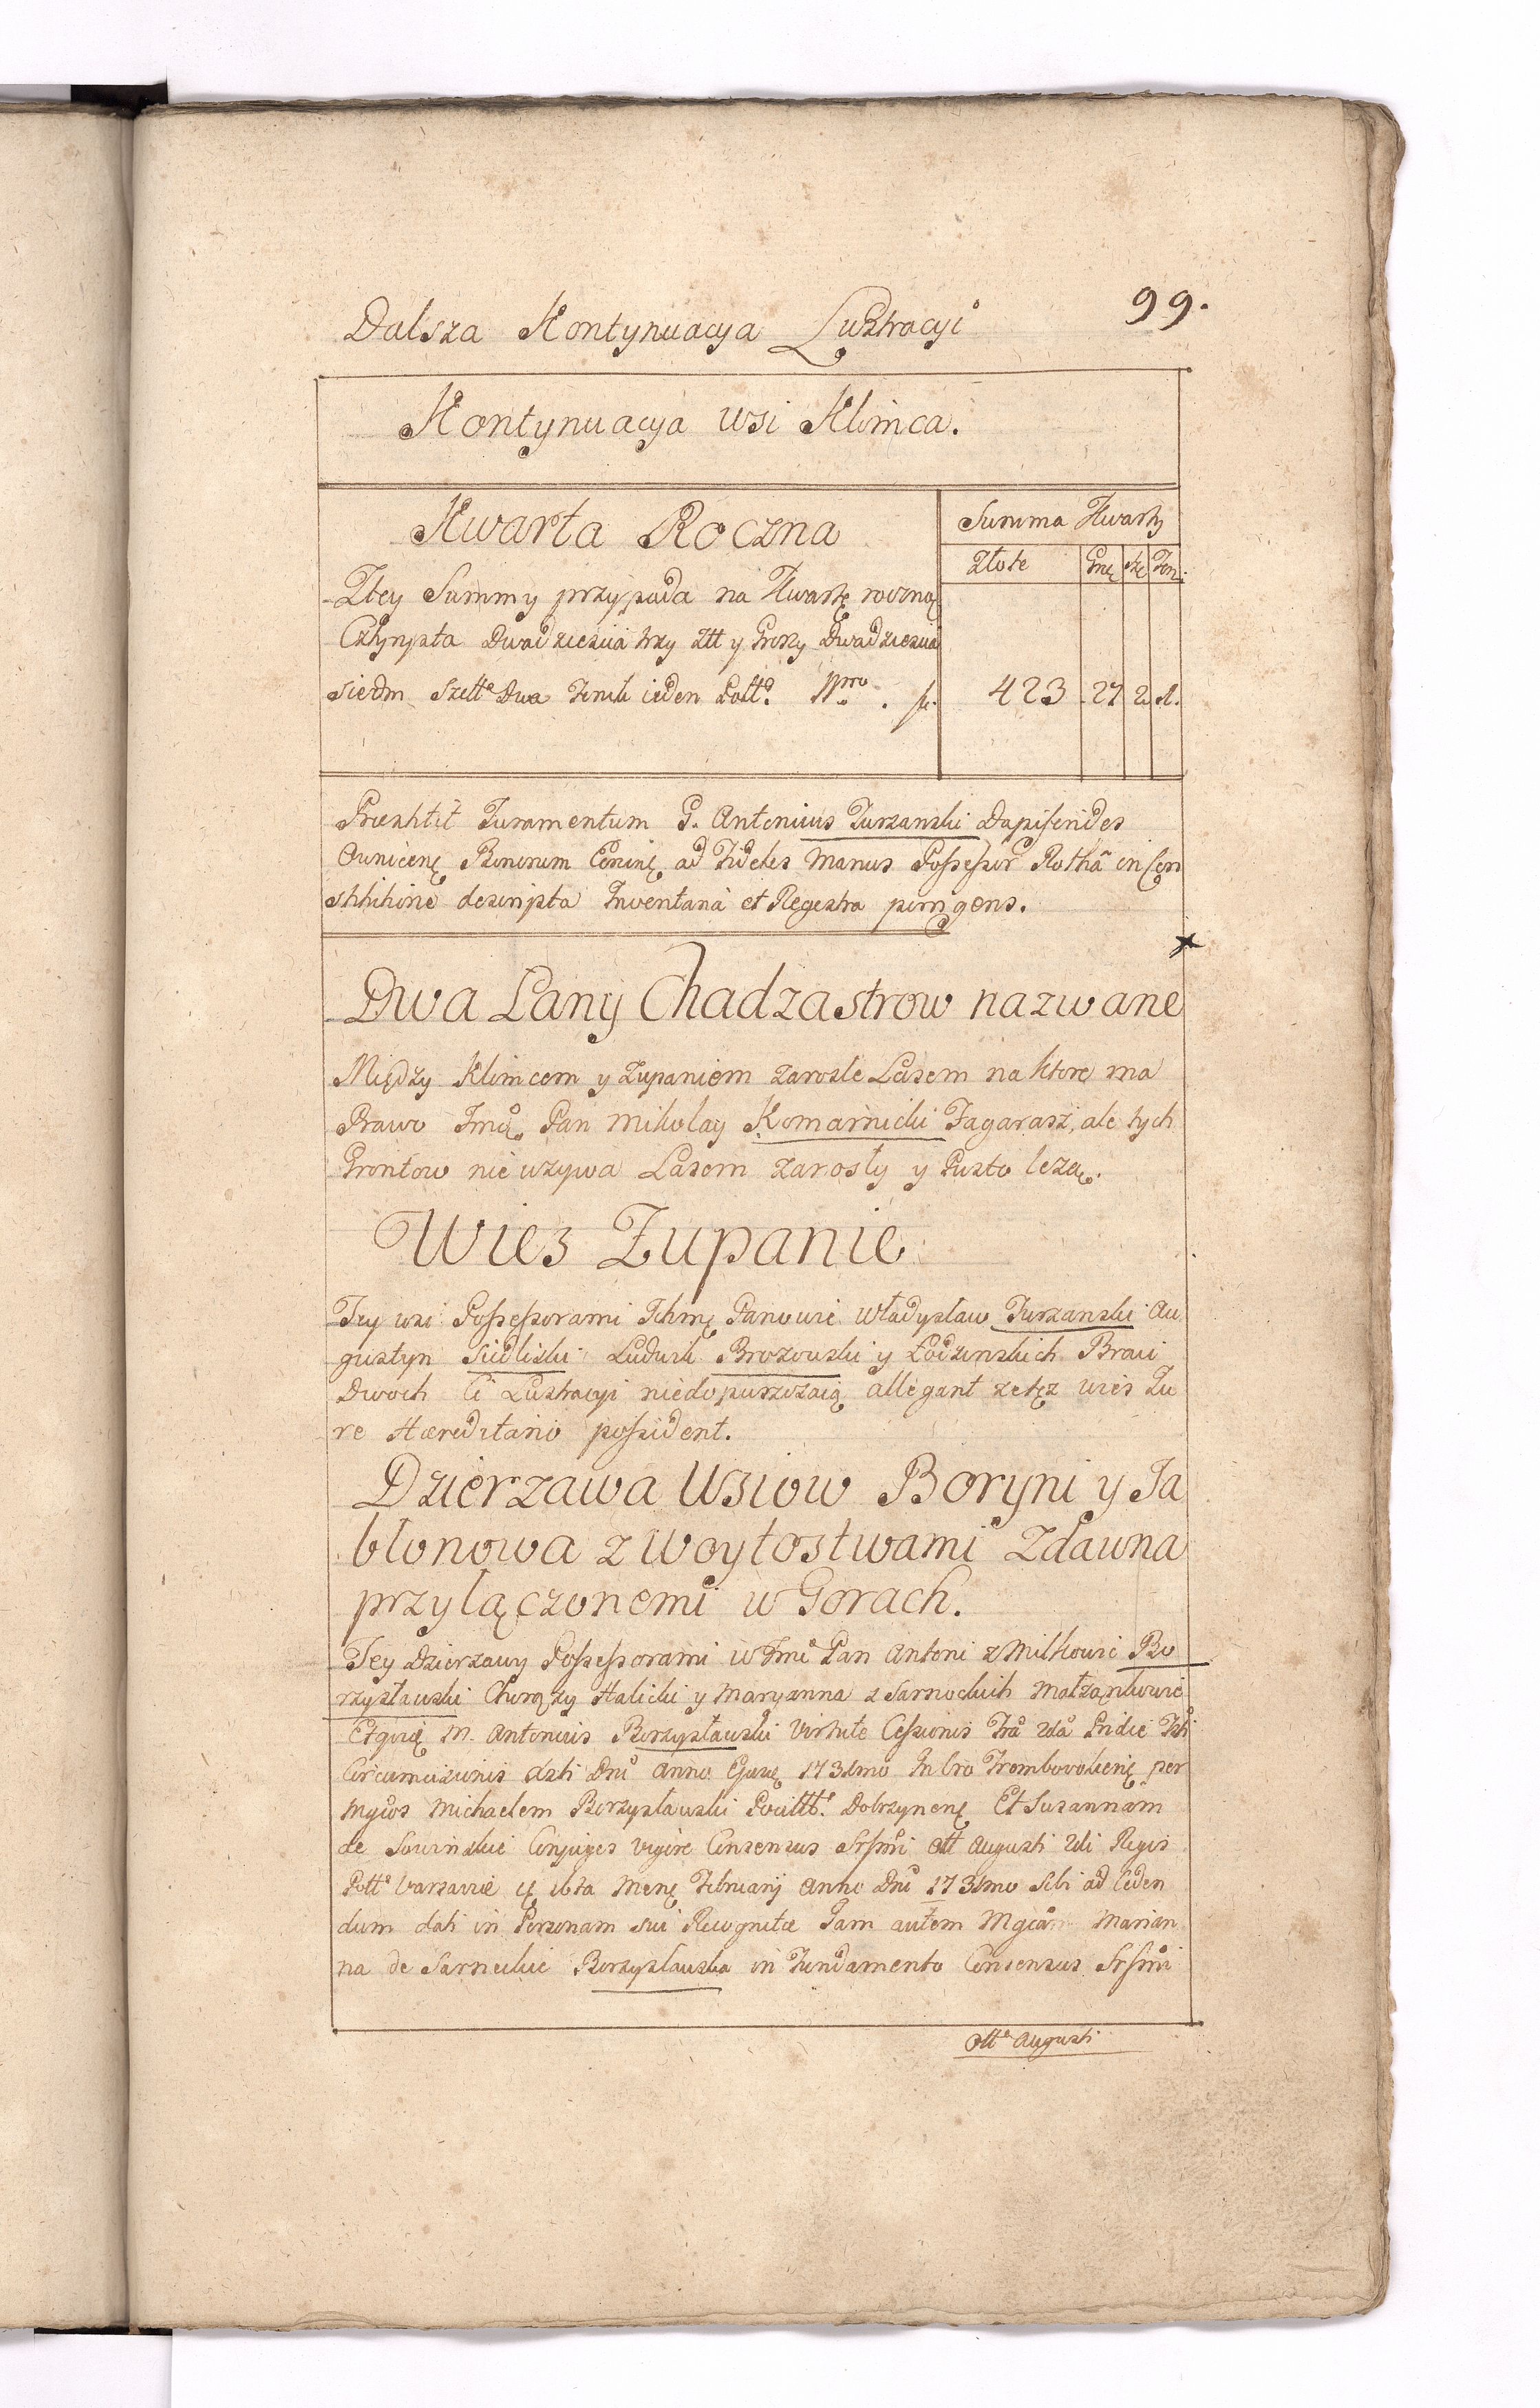 99.
Dalsza Kontynuacya Lustracyi
Kontynuacya Wsi Klimca.
Kwarta Roczna
Summa Kwarty
Złote Gr
Ztey Summy przypada na Kwartę roczną
Cztyrysta Dwadziescia trzy Złł y Groszy Dwadziescia
siedm Szelł Dwa ieden
423 27 2 1.
Juramentum G. Antonius Turzanski Dapiferides
Bonorum ad Fideles Manus Possessor Rotha in Con
descripta Inventaria et Regestra porrigens.
Dwa Lany Chadzastrow nazwane
Między Klimcem y Zupaniem zarosle Lasem na ktore ma
Prawo Jmć Pan Mikolay Komarnicki Jagarasz, ale tych
Grontow nie uzywa Lasem zarosły y Pusto lezą.
Wies Zupanie
Tey wsi Possessorami Ichmć Panowie Władysław Turzanski Au
gustyn Siedliski Ludwik Brozowski y Łodzinskich Braci
Dwoch Ci Lustracyi niedopuszczaią allegant ze tęz wies Ju
re Hæreditario possident.
Dzierzawa Wsiow Boryni y Ja
błonowa z Woytostwami Zdawna
przyłączonemi w Gorach.
Tey Dzierzawy Possessorami W Jmć Pan Antoni z Milkowic Bo
rzysławski Chorązy Halicki y Maryanna z Sarnockich Małzonkowie
M. Antonius Borzysławski Virtute Cessionis Pridie
Circumcisionis Dni Anno 173 per
Michaelem Borzysławski Et Susannam
de Conjuges vigore Consensus Augusti 2di Regis
Varsavie Februarij Anno Dni 173 Sibi ad Ceden
dum dati in Personam sui Recognita Jam autem Marian
na de Borzysławska in Fundamento Consensus
Augusti